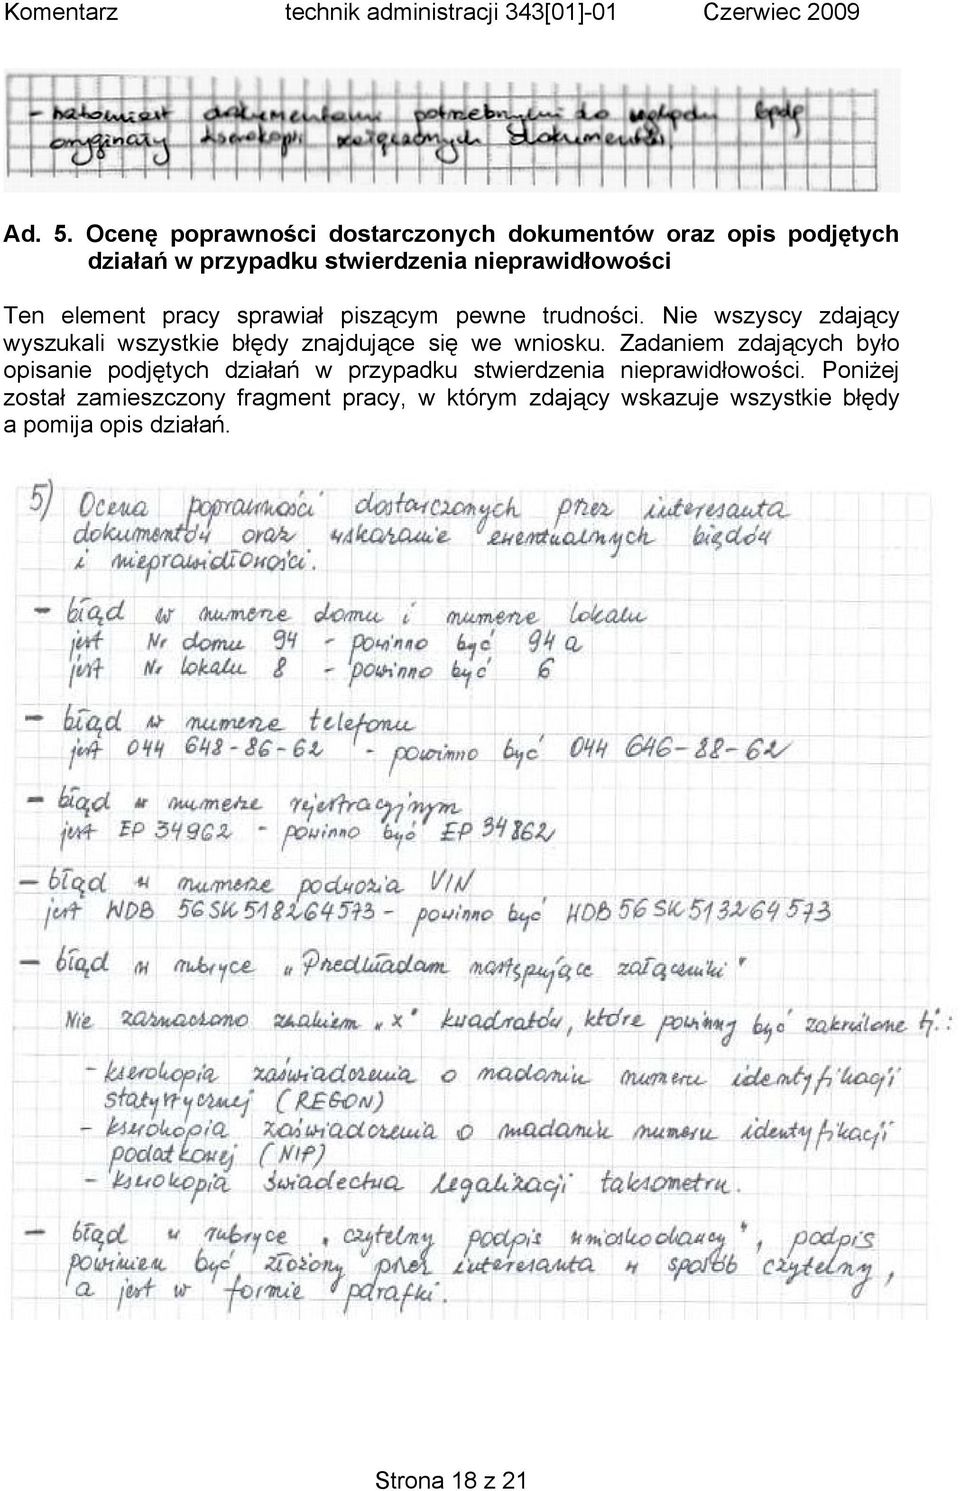 Komentarz technik administracji 343[01]-01 Czerwiec 2009
- natomiast dokumentami potrzebnymi do wglądu będą
oryginały kserokopi załączonych dokumentów.
Ad. 5. Ocenę poprawności dostarczonych dokumentów oraz opis podjętych
działań w przypadku stwierdzenia nieprawidłowości
Ten element pracy sprawiał piszącym pewne trudności. Nie wszyscy zdający
wyszukali wszystkie błędy znajdujące się we wniosku. Zadaniem zdających było
opisanie podjętych działań w przypadku stwierdzenia nieprawidłowości. Poniżej
został zamieszczony fragment pracy, w którym zdający wskazuje wszystkie błędy
a pomija opis działań.
5) Ocena poprawności dostarczonych przez interesanta
dokumentów oraz wskazanie ewentualnych błędów
i nieprawidłowości.
- błąd w numerze domu i numerze lokalu
jest Nr domu 94 - powinno być 94a
jest Nr lokalu 8 - powinno być 6
- błąd w numerze telefonu
jest 044 648-86-62 - powinno być 044 646-88-62
- błąd w numerze rejestracyjnym
jest EP 34962 - powinno być EP 34862
- błąd w numerze podwozia VIN
jest WDB 56SK518264573 - powinno być WDB56SK513264573
- błąd w rubryce "Przedkładam następujące załączniki"
Nie zaznaczono znakiem "x" kwadratów, które powinny być zakreślone tj.:
- kserokopia zaświadczenia o nadaniu numeru identyfikacji
statystycznej (REGON)
- kserokopia zaświadczenia o nadaniu numeru identyfikacji
podatkowej (NIP)
- kserokopia świadectwa legalizacji taksometru.
- błąd w rubryce "czytelny podpis wnioskodawcy", podpis
powinien być złożony przez interesanta w sposób czytelny,
a jest w formie parafki.
Strona 18 z 21